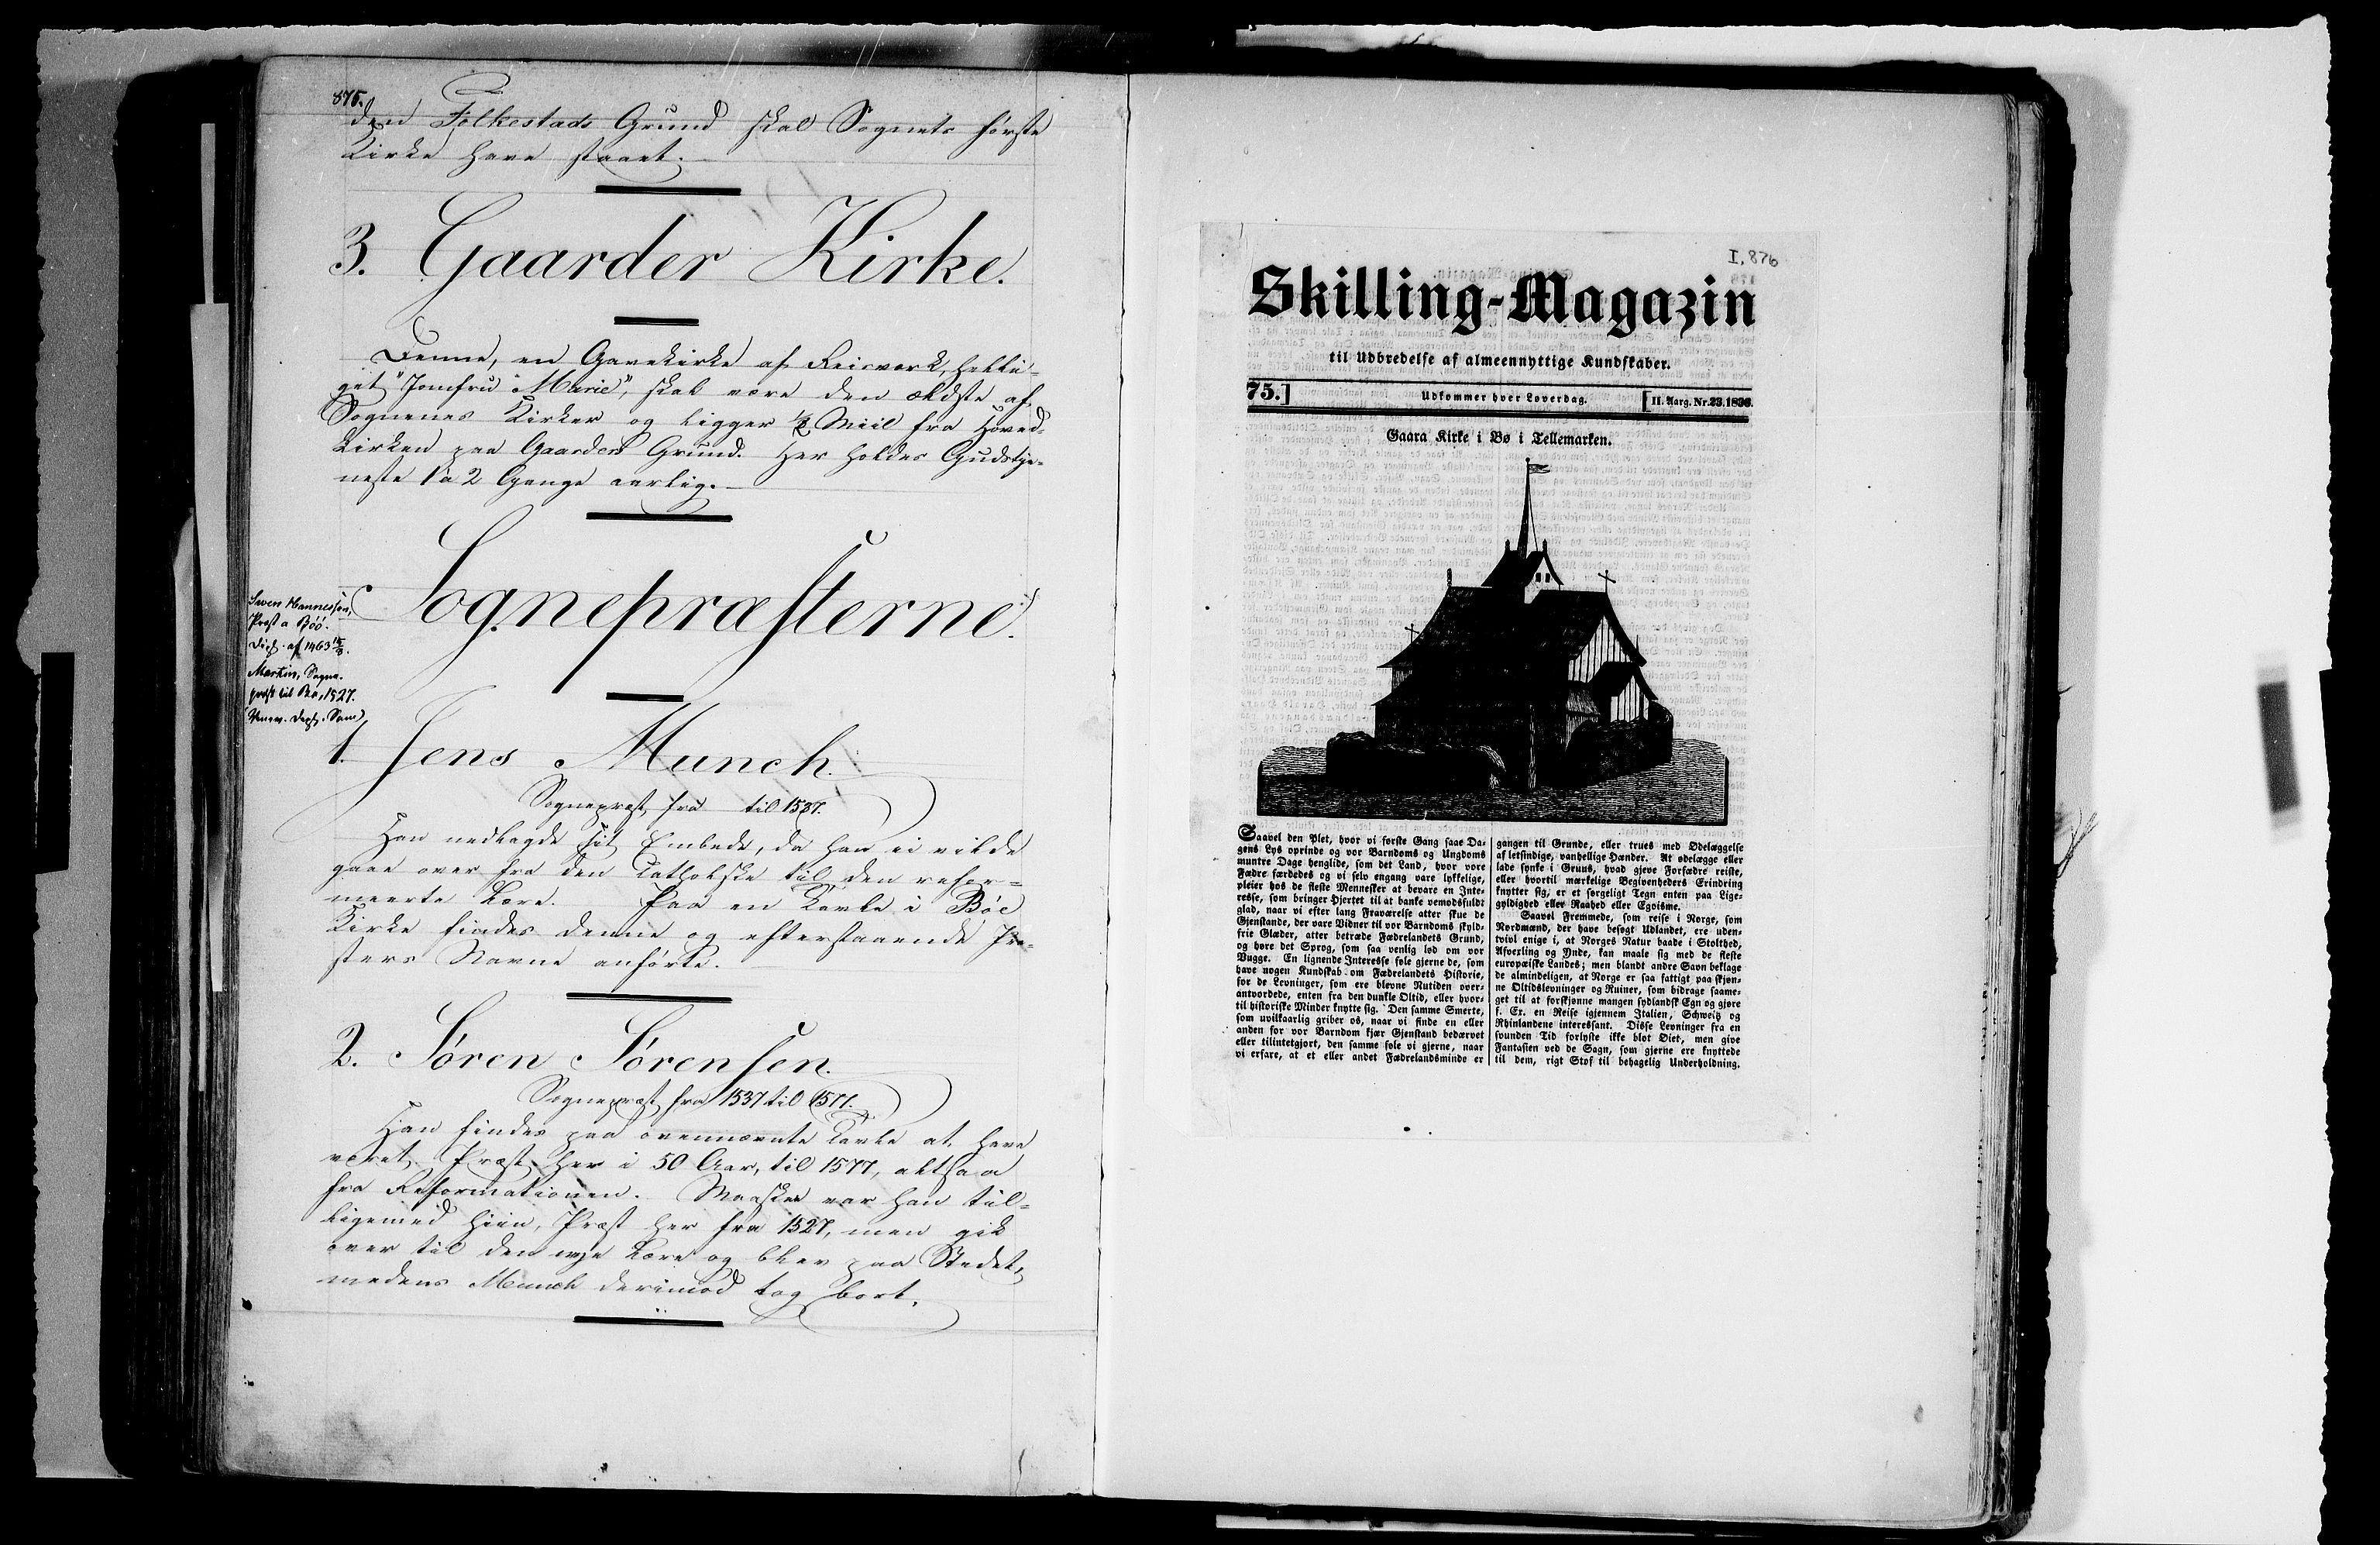 875.
den Folkestads Grund skal Sognets første
Kirke have staaet.
3. Gaarder Kirke.
Denne, en Gavekirke af Reisværk, helli-
get "Jomfru Marie", skal være den ældste af
Sognenes Kirker og ligger 1/2 Miil fra Hoved-
kirken paa Gaarders Grund. Her holdes Gudstje-
neste 1 à 2 Gange aarlig.
Sognepræsterne.
Swen Hannesson,
Præst a Böö.
Dipl. af 1463
Martin, Sogne-
præst til Bø, 1527.
Dipl. Saml.
1. Jens Munch.
Sognepræst fra til 1537.
Han nedlagde sit Embede, da han ei vilde
gaae over fra den catholske til den refor-
meerte Lære. Paa en Tavle i Bøe
Kirke findes denne og efterstaaende Præ-
sters Navne anførte.
2. Søren Sørensen.
Sognepræst fra 1537 til 1577.
Han findes paa ovennævnte Tavle at have
været Præst her i 50 Aar, til 1577, altsaa
fra Reformationen. Maaskee var han til-
ligemed hiin, Præst her fra 1527, men gik
over til den nye Lære og blev paa Stedet,
medens Munch derimod tog bort.
I, 876
Skilling-Magazin
til Udbredelse af almeennyttige Kundskaber.
75.] Udkommer hver Løverdag. [II. Aarg. Nr. 23. 1836.
Gaara Kirke i Bø i Tellemarken.
Saavel den Plet, hvor vi første Gang saae Da-
gens Lys oprinde og vor Barndoms og Ungdoms
muntre Dage henglide, som det Land, hvor vore
Fædre færdedes og vi selv engang vare lykkelige,
pleier hos de fleste Mennesker at bevare en Inte-
resse, som bringer Hjertet til at banke vemodsfuldt
glad, naar vi efter lang Fraværelse atter skue de
Gjenstande, der vare Vidner til vor Barndoms skyld-
frie Glæder, atter betræde Fædrelandets Grund,
og høre det Sprog, som saa venlig lød om vor
Vugge. En lignende Interesse føle gjerne de, som
have nogen Kundskab om Fædrelandets Historie,
for de Levninger, som ere blevne Nutiden over-
antvordede, enten fra den dunkle Oltid, eller hvor-
til historiske Minder knytte sig. Den samme Smerte,
som uvilkaarlig griber os, naar vi finde en eller
anden for vor Barndom kjær Gjenstand bedærvet
eller tilintetgjort, den samme føle vi gjerne, naar
vi erfare, at et eller andet Fædrelandsminde er
gangen til Grunde, eller trues med Ødelæggelse
af letsindige, vanhellige Hænder. At ødelægge eller
lade synke i Gruus, hvad gjæve Forfædre reiste,
eller hvortil mærkelige Begivenheders Erindring
knytter sig, er et sørgeligt Tegn enten paa Lige-
gyldighed eller Raahed eller Egoisme.
Saavel Fremmede, som reise i Norge, som
Nordmænd, der have besøgt Udlandet, ere uden-
tvivl enige i, at Norges Natur baade i Stolthed,
Afvexling og Ynde, kan maale sig med de fleste
europæiske Landes; men blandt andre Savn beklage
de almindeligen, at Norge er saa fattigt paa skjøn-
ne Oltidslevninger og Ruiner, som bidrage saame-
get til at forskjønne mangen sydlandsk Egn og gjøre
f. Ex. en Reise igjennem Italien, Schweitz og
Rhinlandene interessant. Disse Levninger fra en
svunden Tid forlyste ikke blot Øiet, men give
Fantasien ved de Sagn, som gjerne ere knyttede
til dem, rigt Stof til behagelig Underholdning.